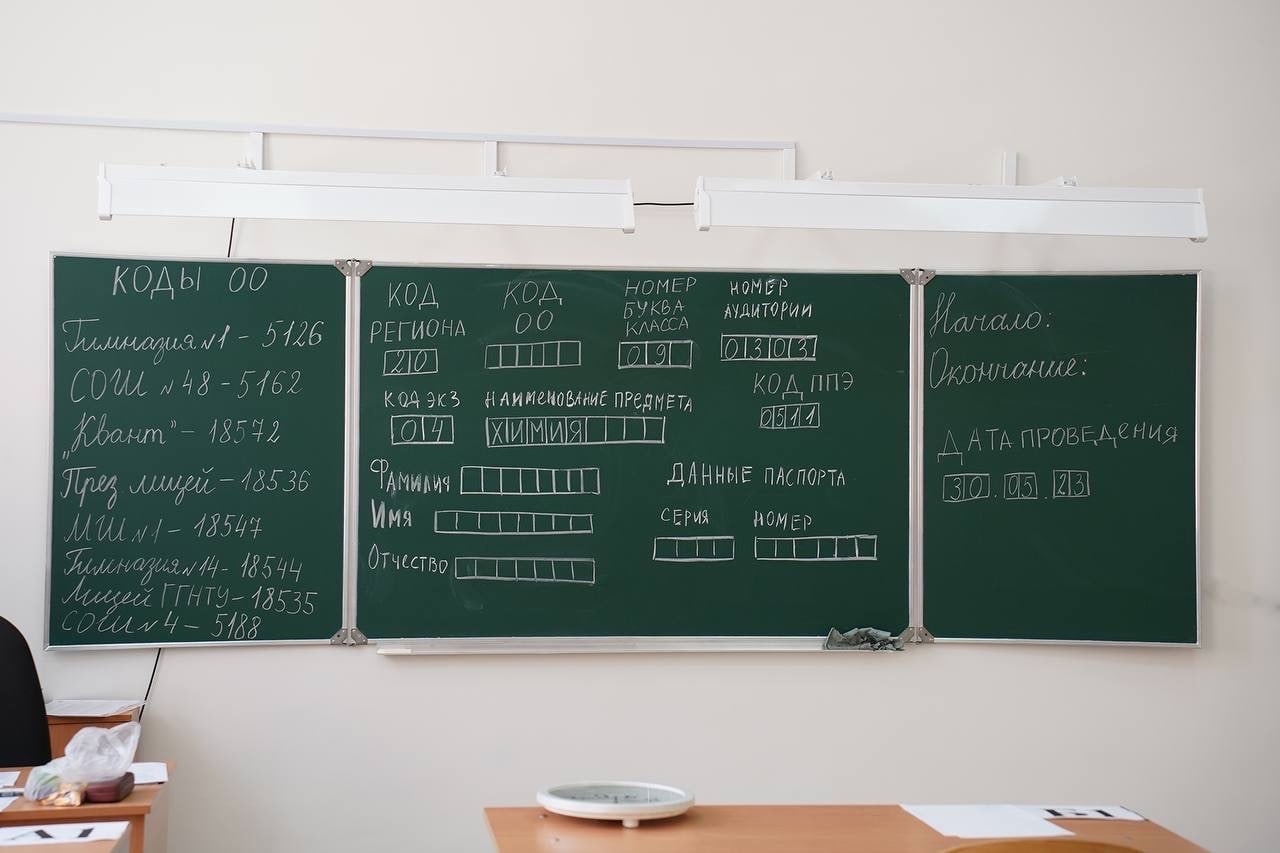 КОДЫ ОО
Гимназия №1 – 5126
СОШ №48 – 5162
„Квант” – 18572
През лицей – 18536
МШ №1 – 18547
Гимназия №14 – 18544
Лицей ГГНТУ – 18535
СОШ №4 – 5188
КОД
РЕГИОНА
20
КОД
ОО
НОМЕР
БУКВА
КЛАССА
09
НОМЕР
АУДИТОРИИ
0303
КОД ЭКЗ
04
НАИМЕНОВАНИЕ ПРЕДМЕТА
ХИМИЯ
КОД ППЭ
0511
Фамилия
Имя
Отчество
ДАННЫЕ ПАСПОРТА
СЕРИЯ
НОМЕР
Начало:
Окончание:
ДАТА ПРОВЕДЕНИЯ
30.05.23